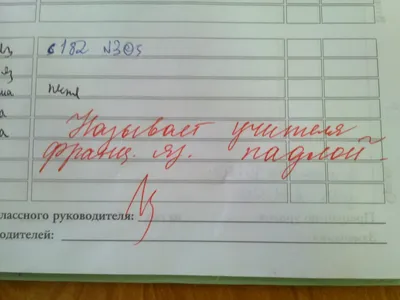 с 182 №305
яз
нет
Называет учителя
франц. яз. падлой.
лассного руководителя:
одителей: